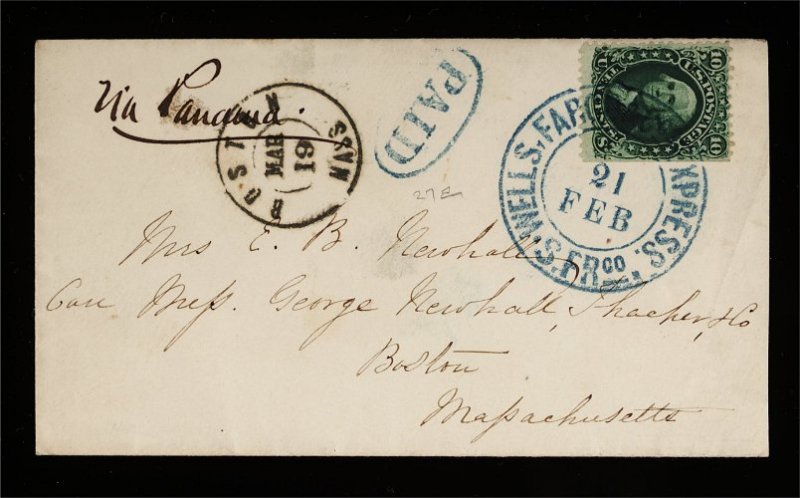 Via Panama.
BOSTON MASS
MAR
19
PAID
10 U.S. POSTAGE 10
WELLS, FARGO EXPRESS.
21
FEB
S. FRCO.
27E
Mrs E. B. Newhall
Care Mess. George Newhall, Thacher, & Co
Boston
Massachusetts